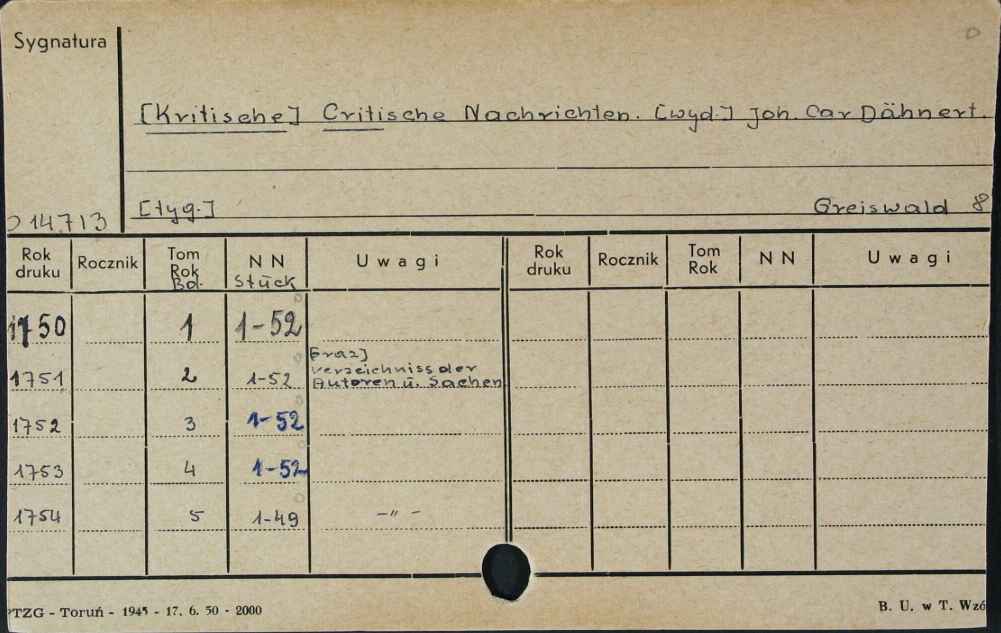 Sygnatura
[Kritische] Critische Nachrichten. [wyd.] Joh. Car Dähnert.
14713 [tyg.] Greiswald 8
Rok druku Rocznik Tom Rok Bd. NN Stück Uwagi Rok druku Rocznik Tom Rok NN Uwagi
1750 1 1-52
1751 2 1-52 [oraz] Verzeichniss der Autoren u. Sachen
1752 3 1-52
1753 4 1-52
1754 5 1-49 -"-
PTZG - Toruń - 1945 - 17. 6. 50 - 2000 B. U. w T. Wzó